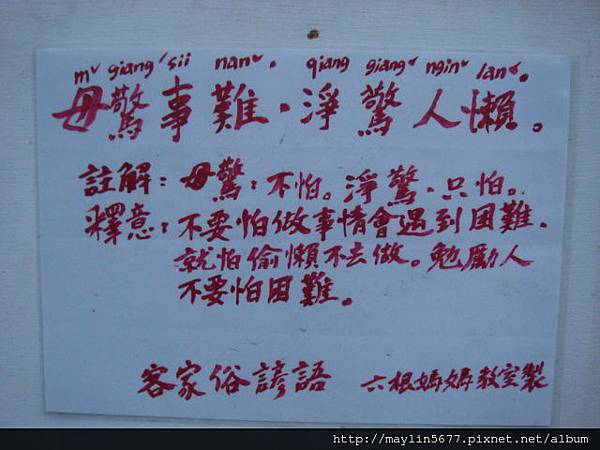 mˇ giangˊ sii nanˇ． qiang giangˊ nginˇ lanˊ。
毋驚事難．淨驚人懶。
註解：毋驚：不怕。淨驚．只怕。
釋意：不要怕做事情會遇到困難．
就怕偷懶不去做。勉勵人
不要怕困難。
客家俗諺語 六根媽媽教室製
http://maylin5677.pixnet.net/album